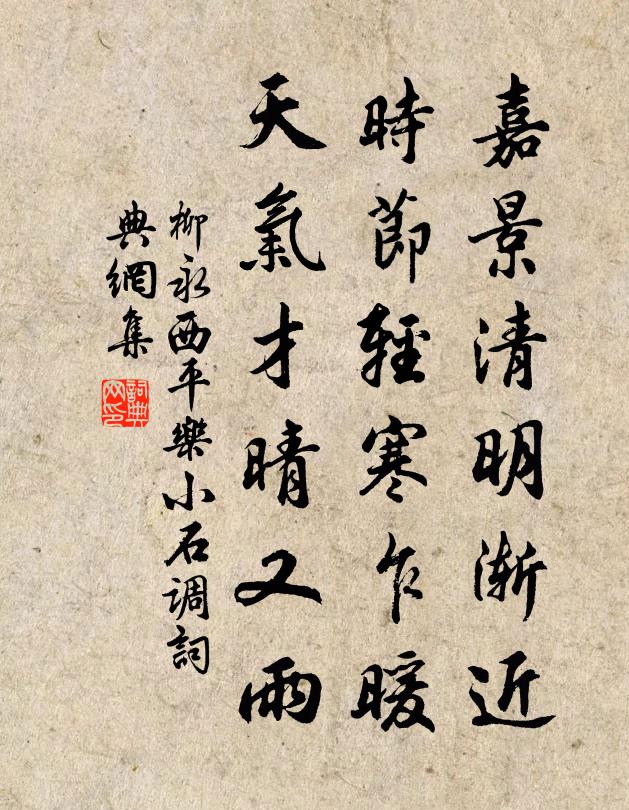 嘉景清明漸近
時節輕寒乍暖
天氣才晴又雨
柳永西平樂小石調詞
典網集
詞典
网印